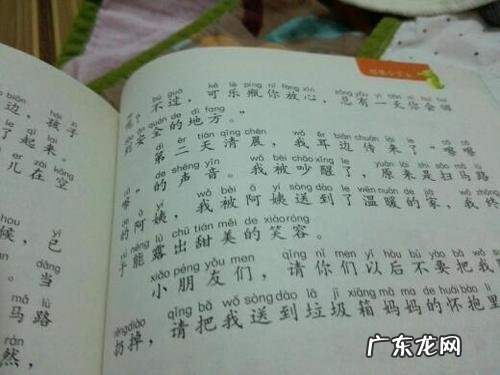 biān hái zi
边，孩子
le qǐ lái
了起来。
ér zài kōng
儿在空
hou yǐ
候，已
dāng
当
mǎ lù
马路
rán
然，
bú guò kě lè píng nǐ fàng xīn zǒng yǒu yì tiān nǐ huì huí
不过，可乐瓶你放心，总有一天你会回
dào ān quán de dì fang
到安全的地方。"
dì èr tiān qīng chén wǒ ěr biān chuán lái le
第二天清晨，我耳边传来了"唰唰
de shēng yīn wǒ bèi chǎo xǐng le yuán lái shì sǎo mǎ lù
唰"的声音。我被吵醒了，原来是扫马路
de ā yí wǒ bèi ā yí sòng dào le wēn nuǎn de jiā wǒ zhōng
的阿姨，我被阿姨送到了温暖的家，我终
yú néng lù chū tián měi de xiào róng
于能露出甜美的笑容。
xiǎo péng yǒu men qǐng nǐ men yǐ hòu bú yào bǎ wǒ
小朋友们，请你们以后不要把我
rēng diào qǐng bǎ wǒ sòng dào lā jī xiāng mā ma de huái bào lǐ
扔掉，请把我送到垃圾箱妈妈的怀抱里
广东龙网